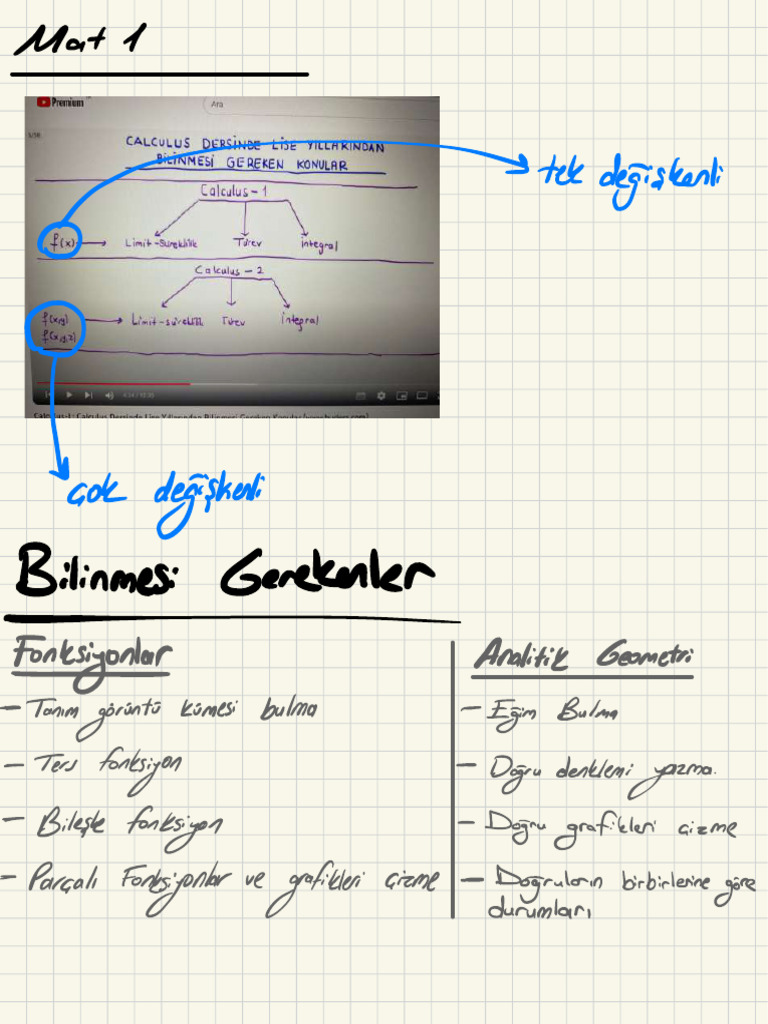 Mat 1
Premium
Ara
CALCULUS DERSİNDE LİSE YILLARINDAN
BİLİNMESİ GEREKEN KONULAR
tek değişkenli
Calculus-1
f(x) Limit-Süreklilik Türev İntegral
Calculus-2
f(x,y) Limit-süreklilik Türev İntegral
f(x,y,z)
Calculus-1: Calculus Dersinde Lise Yıllarından Bilinmesi Gereken Konular
çok değişkenli
Bilinmesi Gerekenler
Fonksiyonlar
- Tanım görüntü kümesi bulma
- Ters fonksiyon
- Bileşke fonksiyon
- Parçalı Fonksiyonlar ve grafikleri çizme
Analitik Geometri
- Eğim Bulma
- Doğru denklemi yazma.
- Doğru grafikleri çizme
- Doğruların birbirlerine göre
durumları